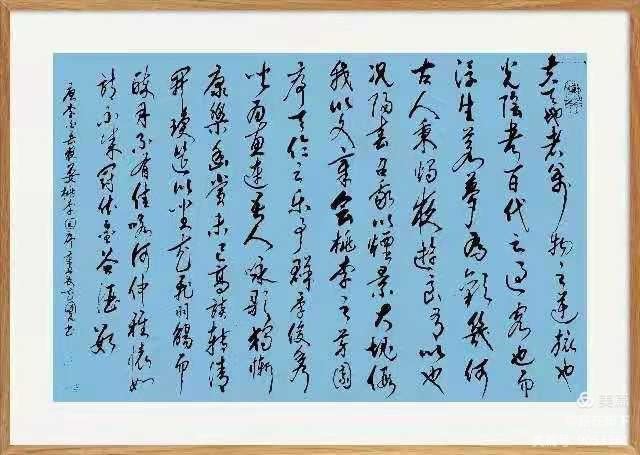 夫天地者萬物之逆旅也
光陰者百代之過客也而
浮生若夢為歡幾何
古人秉燭夜遊良有以也
況陽春召我以煙景大塊假
我以文章會桃李之芳園
序天倫之樂事群季俊秀
皆為惠連吾人詠歌獨慚
康樂幽賞未已高談轉清
開瓊筵以坐花飛羽觴而
醉月不有佳咏何伸雅懷如
詩不成罰依金谷酒數
唐李白春夜宴桃李園序
美篇